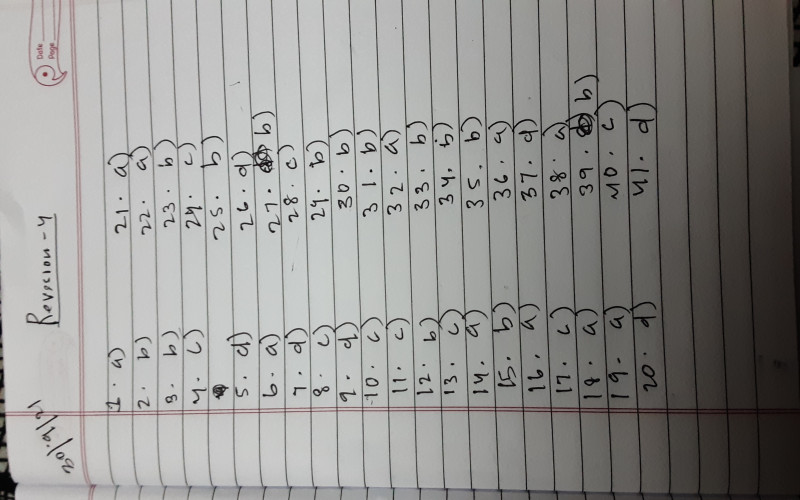 Date
Page
30/9/21
Revision-4
1. a) 21. a)
2. b) 22. a)
3. b) 23. b)
4. c) 24. c)
25. b)
5. d) 26. d)
6. a) 27. b)
7. d) 28. c)
8. c) 29. b)
9. d) 30. b)
10. c) 31. b)
11. c) 32. a)
12. b) 33. b)
13. c) 34. b)
14. a) 35. b)
15. b) 36. a)
16. a) 37. d)
17. c) 38. a)
18. a) 39. b)
19. a) 40. c)
20. d) 41. d)